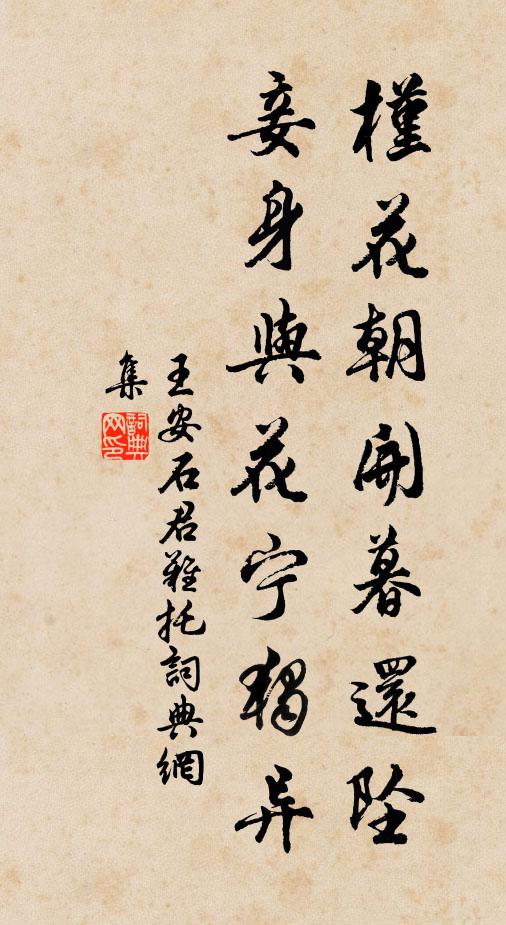 槿花朝開暮還墜
妾身與花宁獨异
王安石君難托詞典網
集
詞典
网印